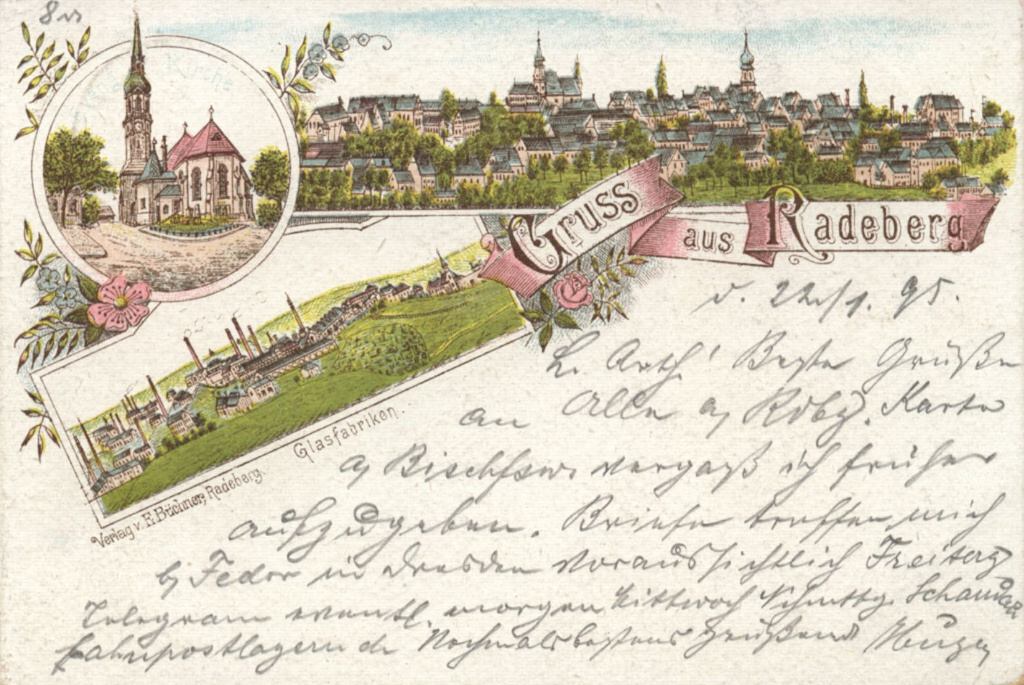 Kirche
Gruss
aus Radeberg
Glasfabriken.
Verlag v. F. Büchner, Radeberg.
d. 22./1. 95.
L. Arth! Beste Grüße
an Alle a/ Rdbg. Karte
a/ Bischfsw. vergaß ich früher
aufzugeben. Briefe treffen mich
b/ Fedor in Dresden voraussichtlich Freitag
Telegram eventl. morgen Mittwoch Nchmttg. Schandau
bahnpostlagernd. Nochmals bestens grüßend Hugo